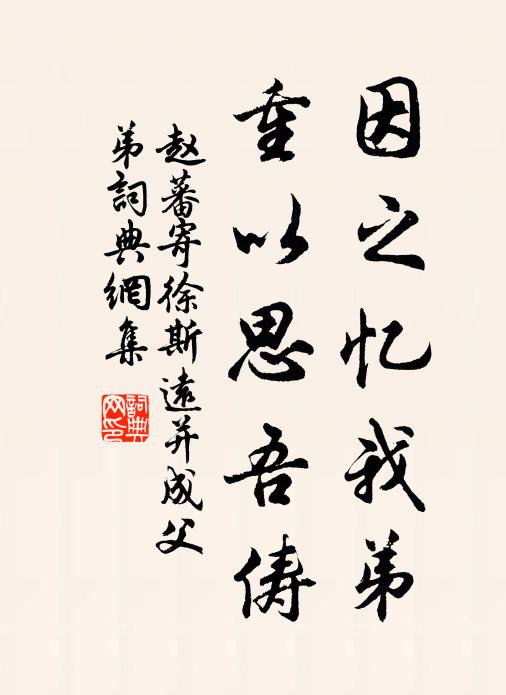 因之忆我弟
重以思吾俦
赵蕃寄徐斯远并成父
弟詞典網集
詞典网印